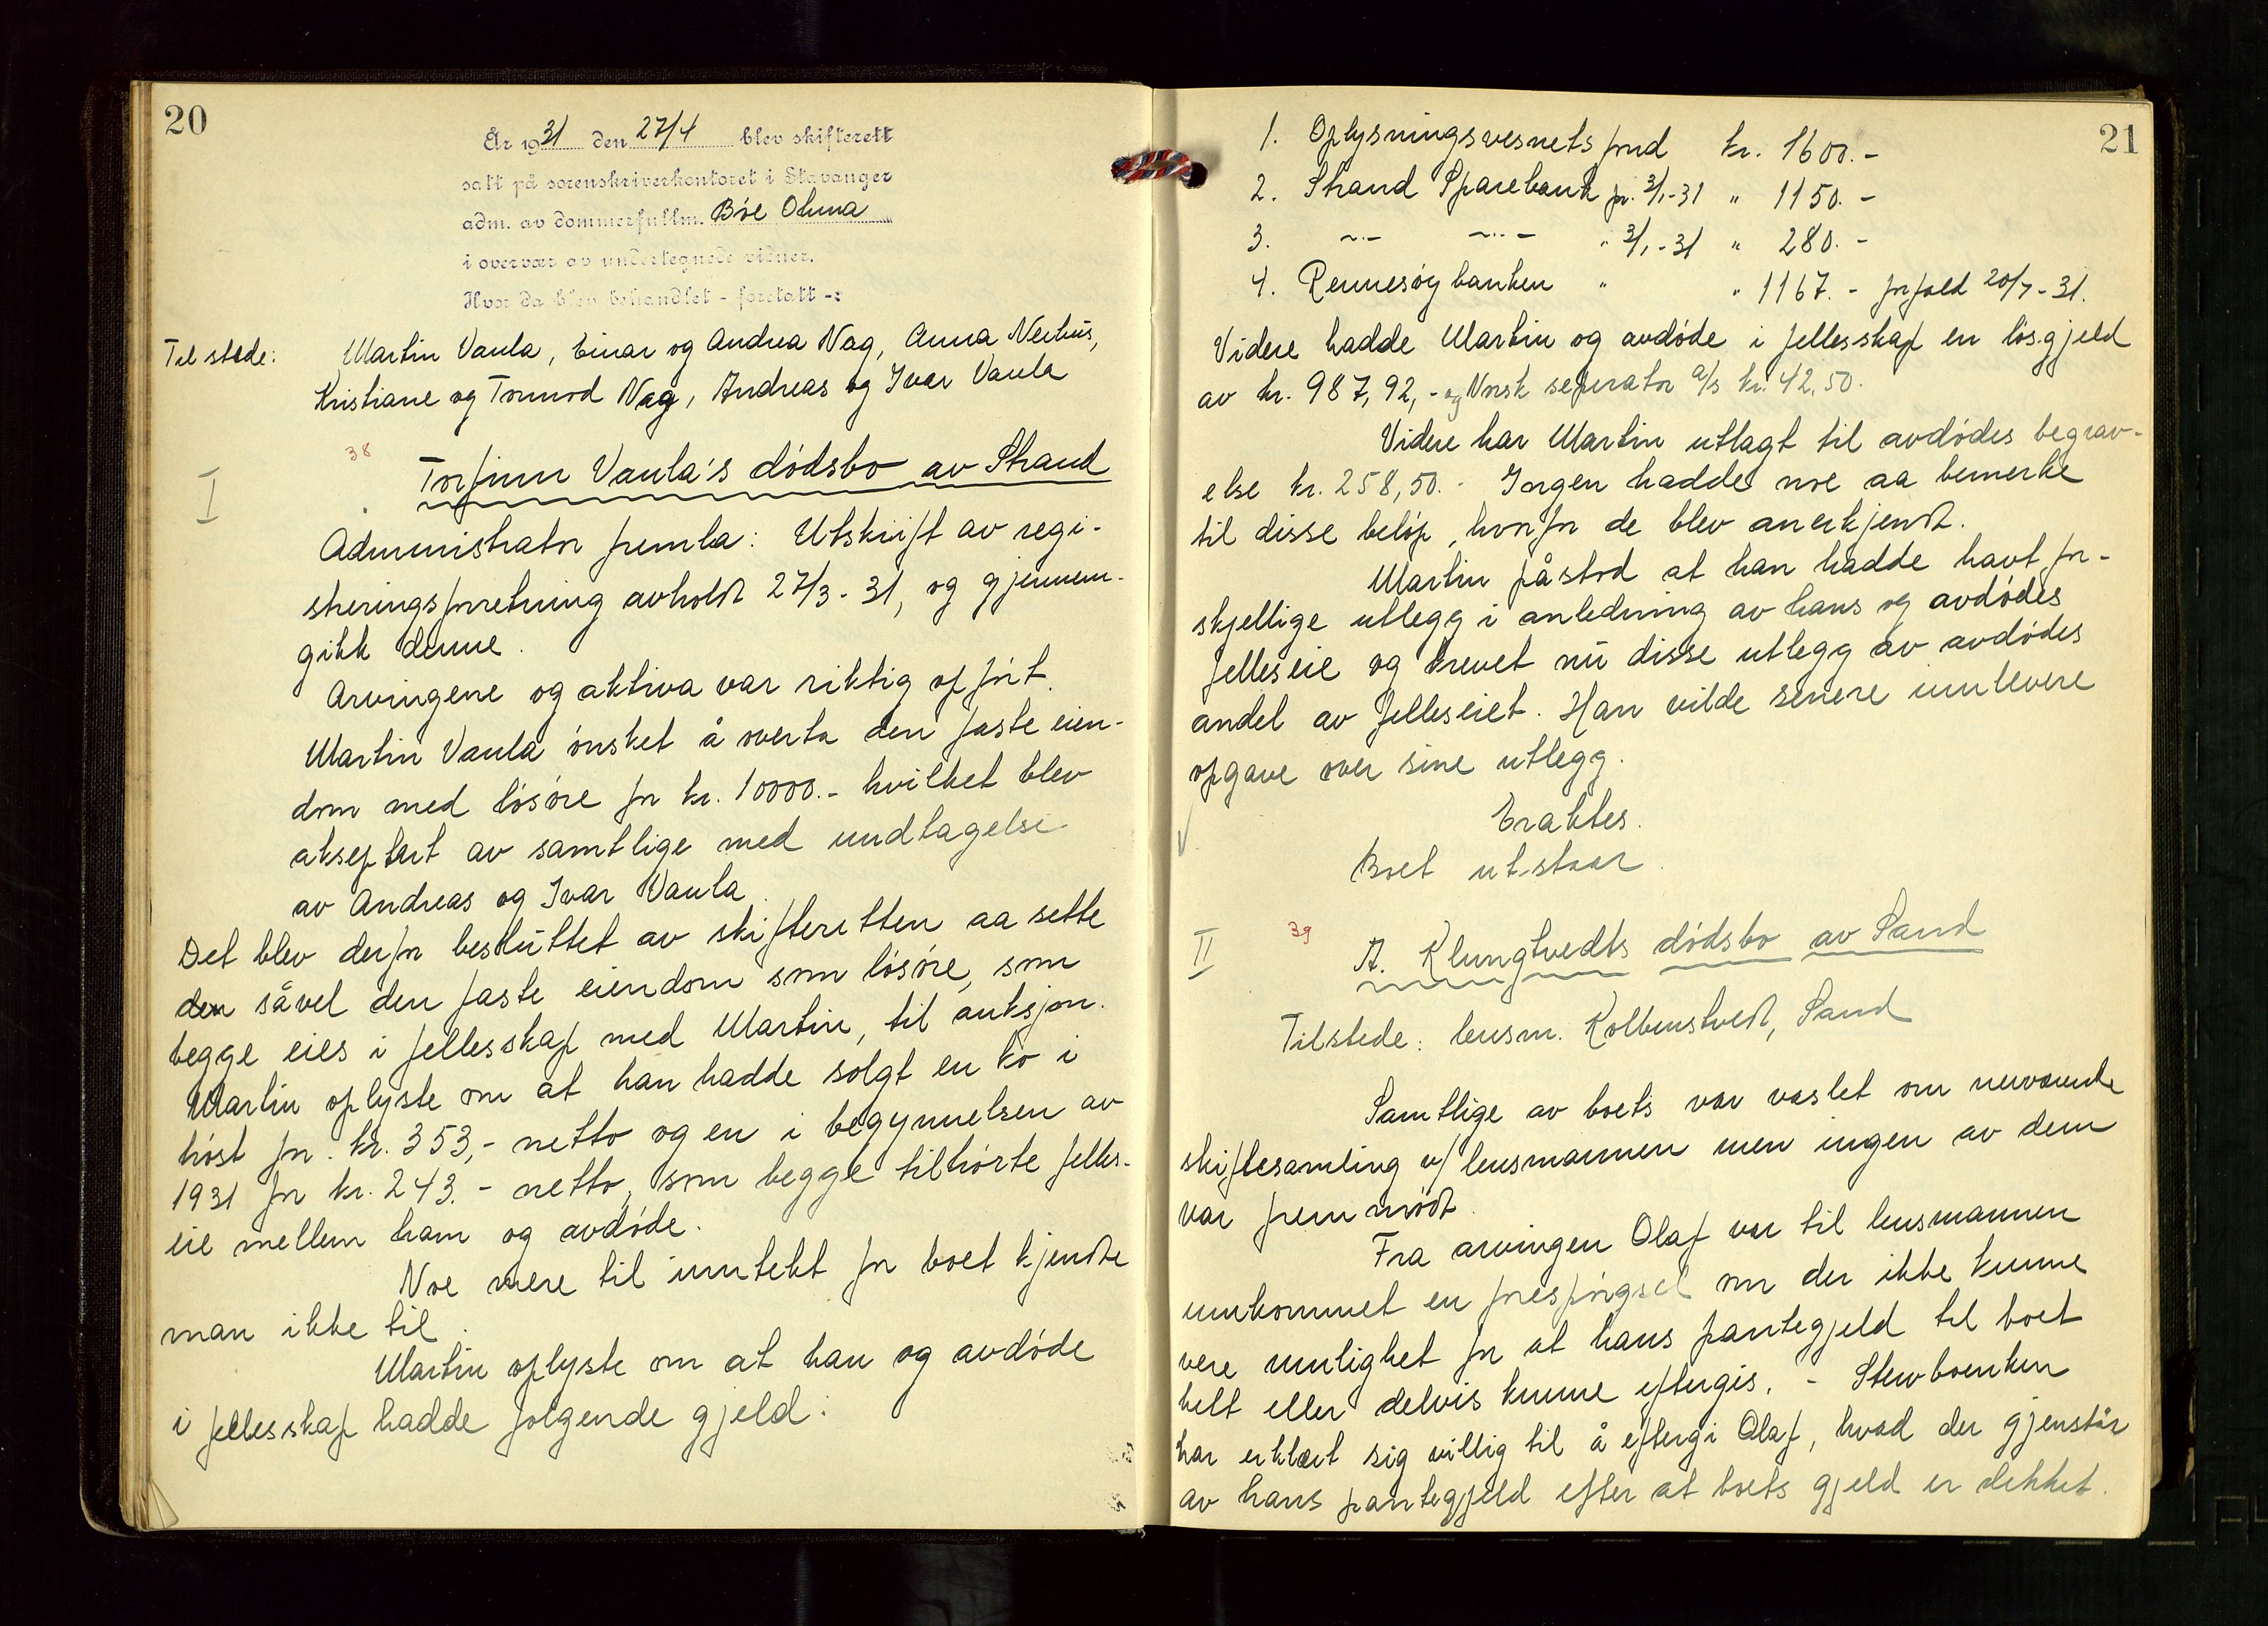 20
År 1931 den 27/4 blev skifterett
satt på sorenskriverkontoret i Stavanger
adm. av dommerfullm. Bøe Ohma
i overvær av undertegnede vidner.
Hvor da blev behandlet - foretatt -:
Tilstede: Martin Vaula, Einar og Andrea Nag, Anna Nerhus,
Kristiane og Tormod Nag, Andreas og Ivar Vaula
38
I Torfinn Vaula's dødsbo av Strand
Administrator fremla: Utskrift av regi-
streringsforretning avholdt 27/3-31, og gjennem-
gikk denne.
Arvingene og aktiva var riktig opført.
Martin Vaula ønsket å overta den faste eien-
dom med løsøre for kr. 10000.- hvilket blev
akseptert av samtlige med undtagelse
av Andreas og Ivar Vaula.
Det blev derfor besluttet av skifteretten aa sette
den såvel den faste eiendom som løsøre, som
begge eies i fellesskap med Martin, til auksjon.
Martin oplyste om at han hadde solgt en ko i
høst for kr. 353,- netto og en i begynnelsen av
1931 for kr. 243.- netto, som begge tilhørte felles-
eie mellem ham og avdøde.
Noe mere til inntekt for boet kjendte
man ikke til.
Martin oplyste om at han og avdøde
i fellesskap hadde følgende gjeld:
21
1. Oplysningsvesnets fond kr. 1600.-
2. Strand Sparebank pr. 3/1-31 " 1150.-
3. -"- -"- " 3/1-31 " 280.-
4. Rennesøybanken " " 1167.- forfald 20/7-31.
Videre hadde Martin og avdøde i fellesskap en løs.gjeld
av kr. 987,92,- og Norsk seperator a/s kr. 42,50.
Videre har Martin utlagt til avdødes begrav-
else kr. 258,50.- Ingen hadde noe aa bemerke
til disse beløp, hvorfor de blev anerkjendt.
Martin påstod at han hadde havt for-
skjellige utlegg i anledning av hans og avdødes
felleseie og krevet nu disse utlegg av avdødes
andel av felleseiet. Han vilde senere innlevere
opgave over sine utlegg.
Eraktes.
Boet utstaar.
39
II A. Klungtvedts dødsbo av Sand
Tilstede: lensm. Kolbenstvedt, Sand
Samtlige av boets var varslet om nerværende
skiftesamling v/ lensmannen men ingen av dem
var fremmødt.
Fra arvingen Olaf var til lensmannen
innkommet en forespørgsel om der ikke kunne
være mulighet for at hans pantegjeld til boet
helt eller delvis kunne eftergis. - Stevboenken
har erklært sig villig til å eftergi Olaf, hvad der gjenstår
av hans pantegjeld efter at boets gjeld er dekket.